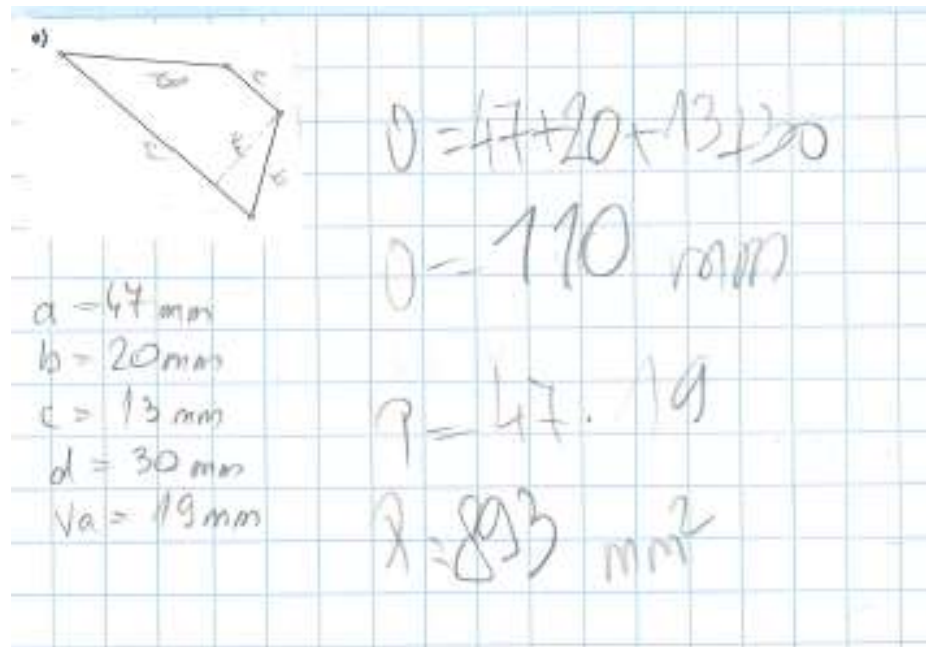 e)
c
b
a = 47 mm
b = 20 mm
c = 13 mm
d = 30 mm
va = 19 mm
O = 47 + 20 + 13 + 30
O = 110 mm
P = 47 · 19
P = 893 mm²